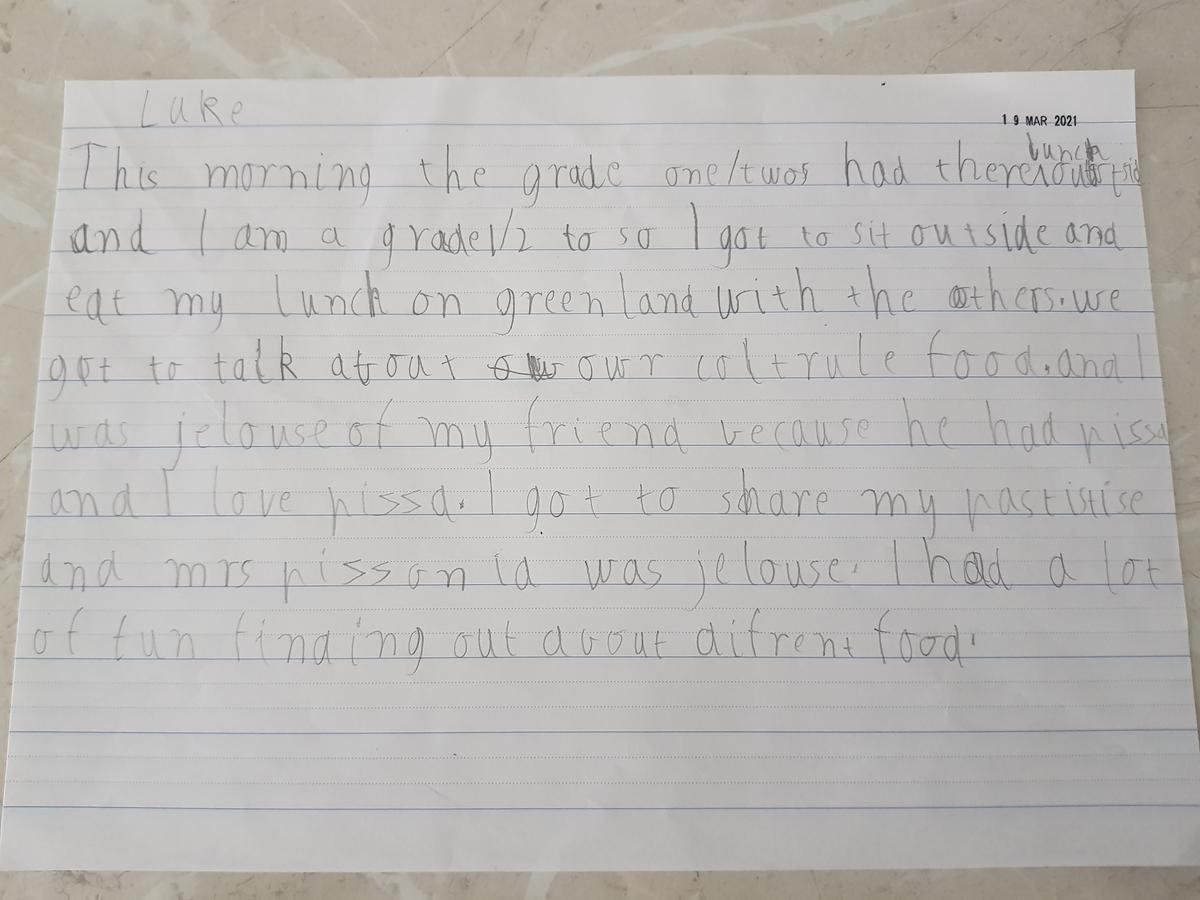 Luke
19 MAR 2021
This morning the grade one/twos had there lunch outsid
and I am a grade 1/2 to so I got to sit outside and
eat my lunch on green land with the others. we
got to talk about owr coltrule food. and I
was jelouse of my friend because he had pissa
and I love pissa. I got to share my pastistise
and mrs pissonia was jelouse. I had a lot
of fun finding out about difrent food.